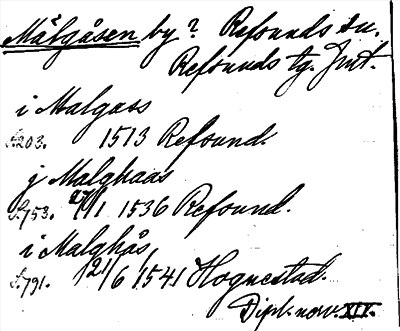 Målgåsen by? Refsunds sn.
Refsunds tg. Jmt.
i Malgass
S.203. 1513 Refsund.
j Malghaas
S.753. 27/1 1536 Refsund.
i Malghås,
S.791. 12/6 1541 Hognestad.
Dipl. norv. XIV.